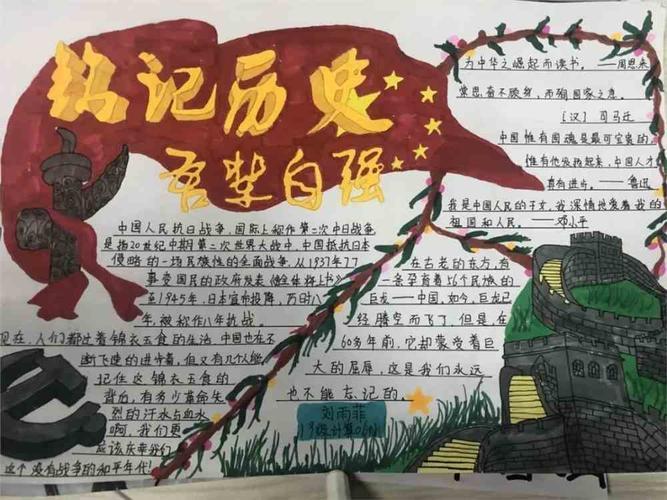 铭记历史
吾辈自强
为中华之崛起而读书。——周恩来
常思奋不顾身,而殉国家之急。
(汉)司马迁
中国惟有国魂是最可宝贵的
惟有他发扬起来,中国人才有
真有进步。——鲁迅
我是中国人民的子女,我深情地爱着我的
祖国和人民。——邓小平
中国人民抗日战争,国际上称作第二次中日战争
是指20世纪中期第二次世界大战中,中国抵抗日本
侵略的一场民族性的全面战争,从1937年7.7
事变国民的政府发表
至1945年,日本宣布投降,历时八
年,被称作八年抗战。
现在,人们都过着锦衣玉食的生活,中国也在不
断飞速的进步着,但又有几个人能
记住这锦衣玉食的
背后,有多少革命先
烈的汗水与血水
啊,我们更
应该庆幸我们
这个没有战争的和平年代!
在古老的东方,有
一条孕育着56个民族的
巨龙——中国,如今,巨龙已
经腾空而飞了,但是,在
60多年前,它却蒙受着巨
大的屈辱,这是我们永远
也不能忘记的。
刘雨菲